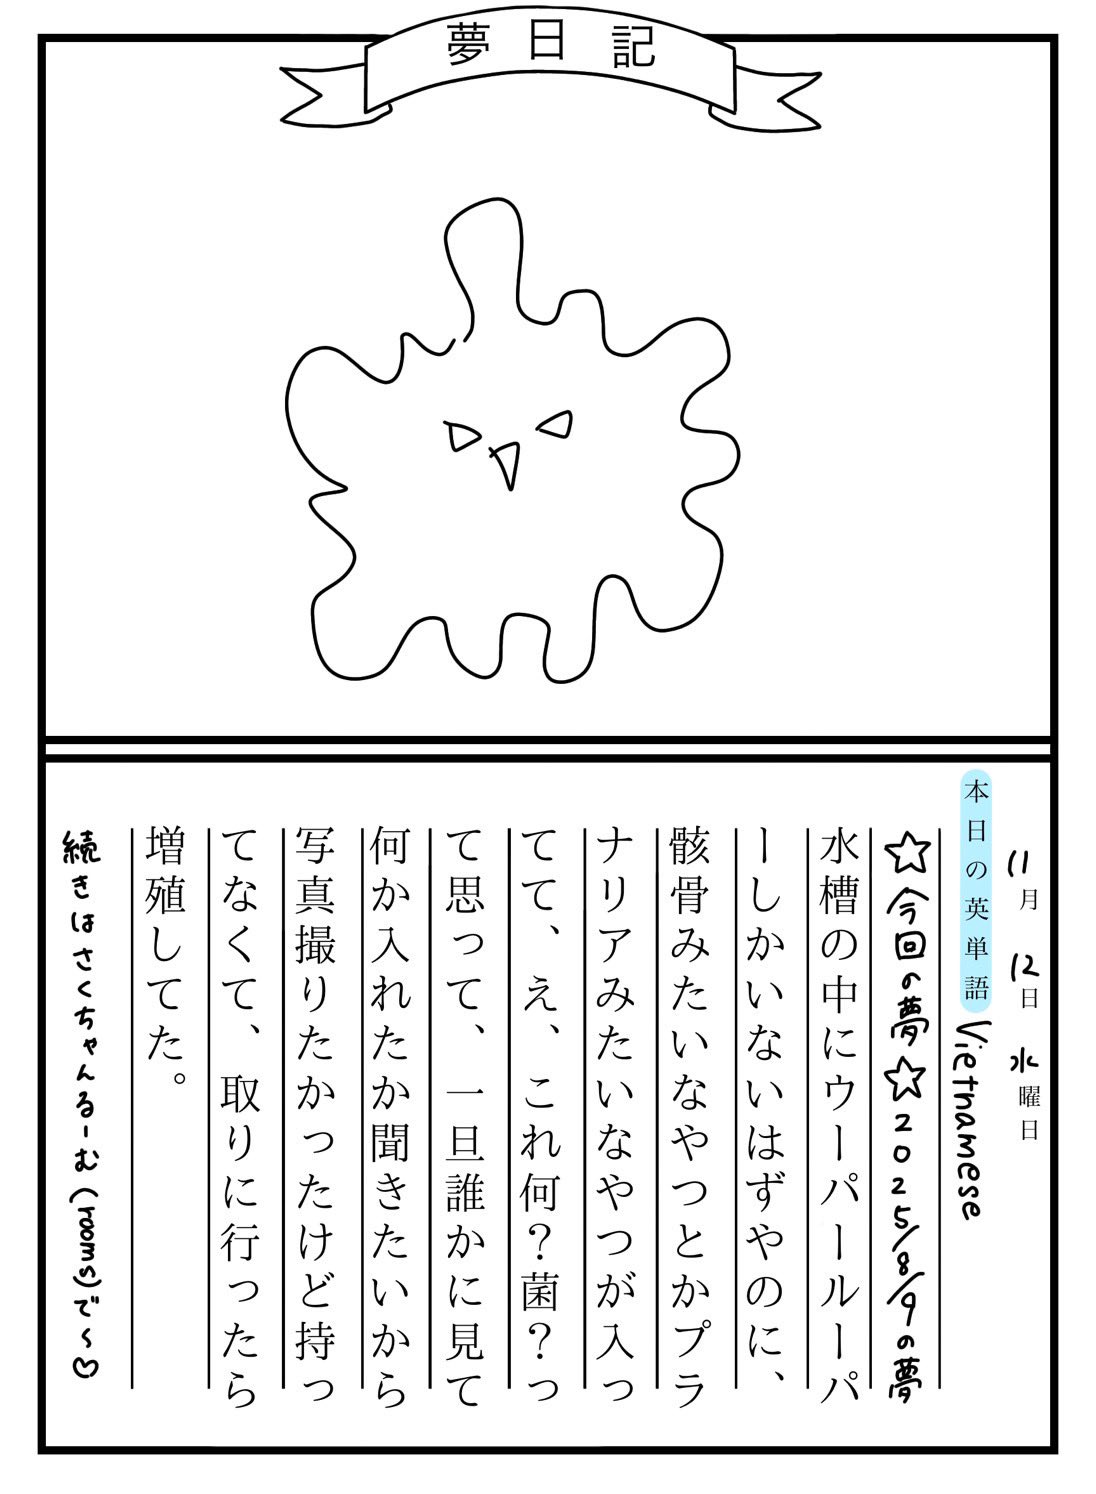 夢日記
11月 12日 水曜日
本日の英単語 Vietnamese
☆今回の夢☆2025/8/9の夢
水槽の中にウーパールーパ
ーしかいないはずやのに、
骸骨みたいなやつとかプラ
ナリアみたいなやつが入っ
てて、え、これ何？菌？っ
て思って、一旦誰かに見て
何か入れたか聞きたいから
写真撮りたかったけど持っ
てなくて、取りに行ったら
増殖してた。
続きはさくちゃんるーむ(rooms)で〜♡